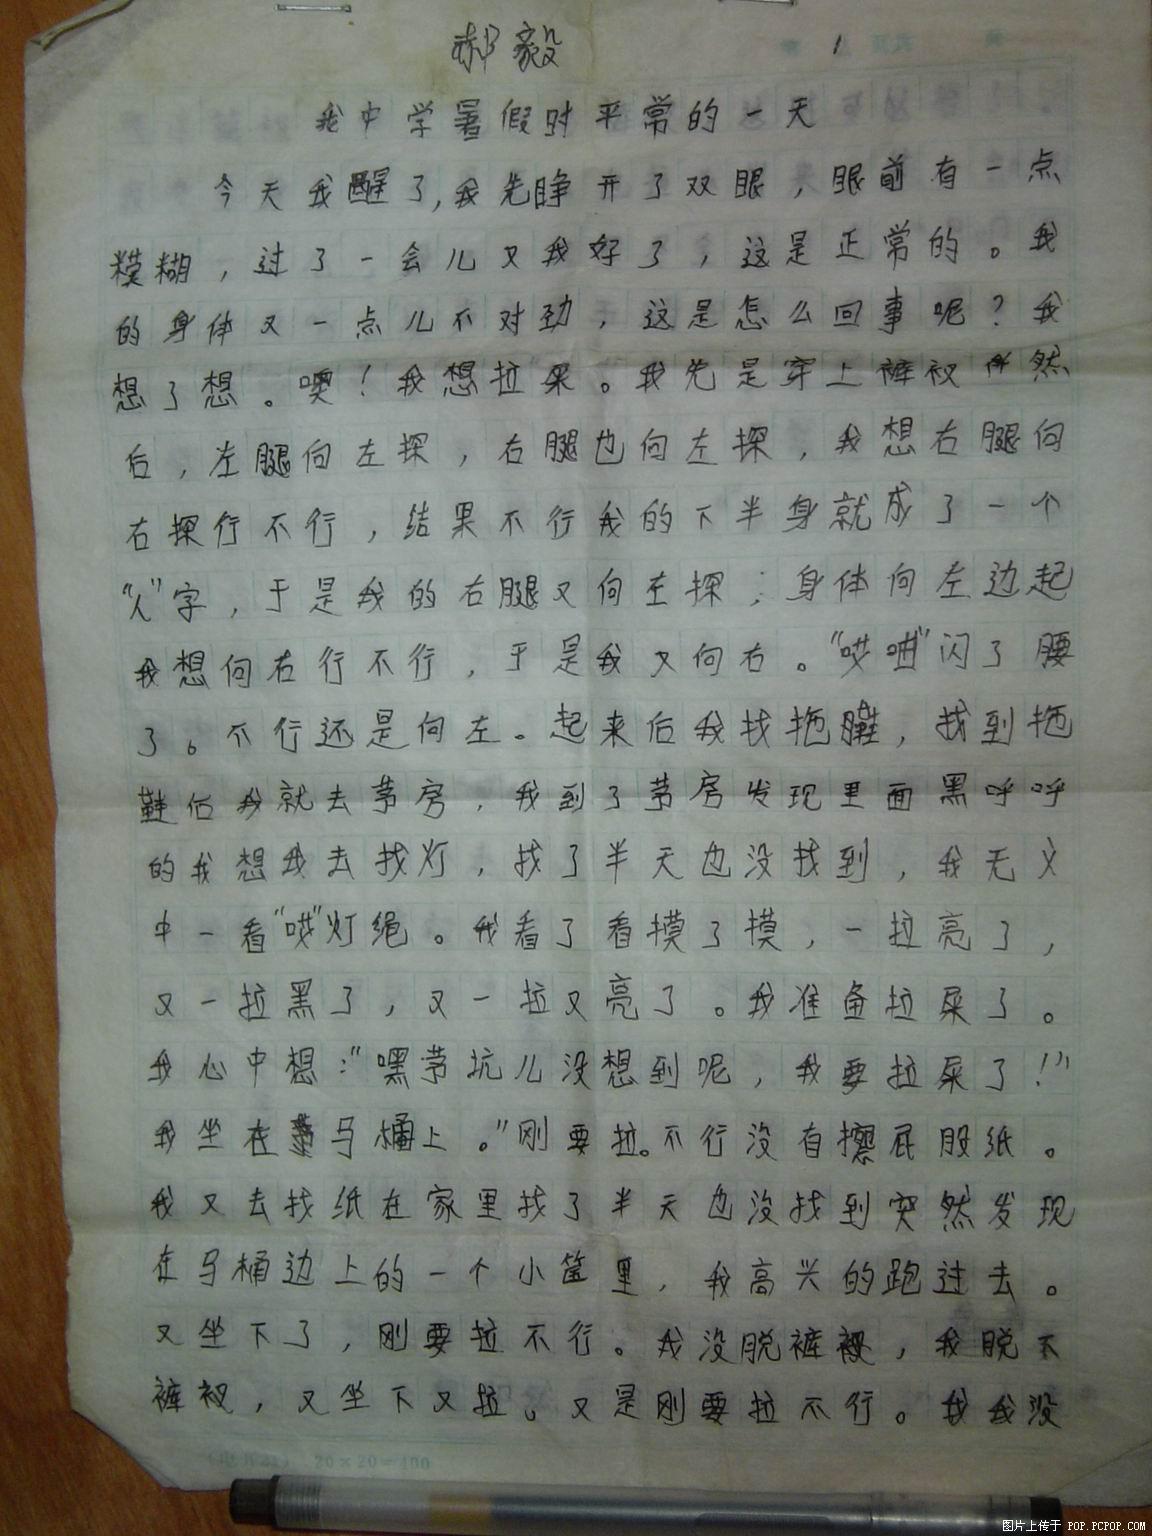 郝毅
1
我中学暑假时平常的一天
今天我醒了,我先睁开了双眼，眼前有一点
糢糊，过了一会儿又我好了，这是正常的。我
的身体又一点儿不对劲，这是怎么回事呢？我
想了想。噢！我想拉屎。我先是穿上裤衩然
后，左腿向左探，右腿也向左探，我想右腿向
右探行不行，结果不行我的下半身就成了一个
“人”字，于是我的右腿又向左探；身体向左边起
我想向右行不行，于是我又向右。“哎呦”闪了腰
了。不行还是向左。起来后我找拖鞋，找到拖
鞋后我就去茅房，我到了茅房发现里面黑呼呼
的我想我去找灯，找了半天也没找到，我无义
中一看“哎”灯绳。我看了看摸了摸，一拉亮了，
又一拉黑了，又一拉又亮了。我准备拉屎了。
我心中想：“嘿茅坑儿没想到呢，我要拉屎了！”
我坐在马桶上。”刚要拉。不行没有擦屁股纸。
我又去找纸在家里找了半天也没找到突然发现
在马桶边上的一个小筐里，我高兴的跑过去。
又坐下了，刚要拉不行。我没脱裤衩，我脱下
裤衩，又坐下又拉。又是刚要拉不行。我我没
20×20=400
图片上传于 POP.PCPOP.COM